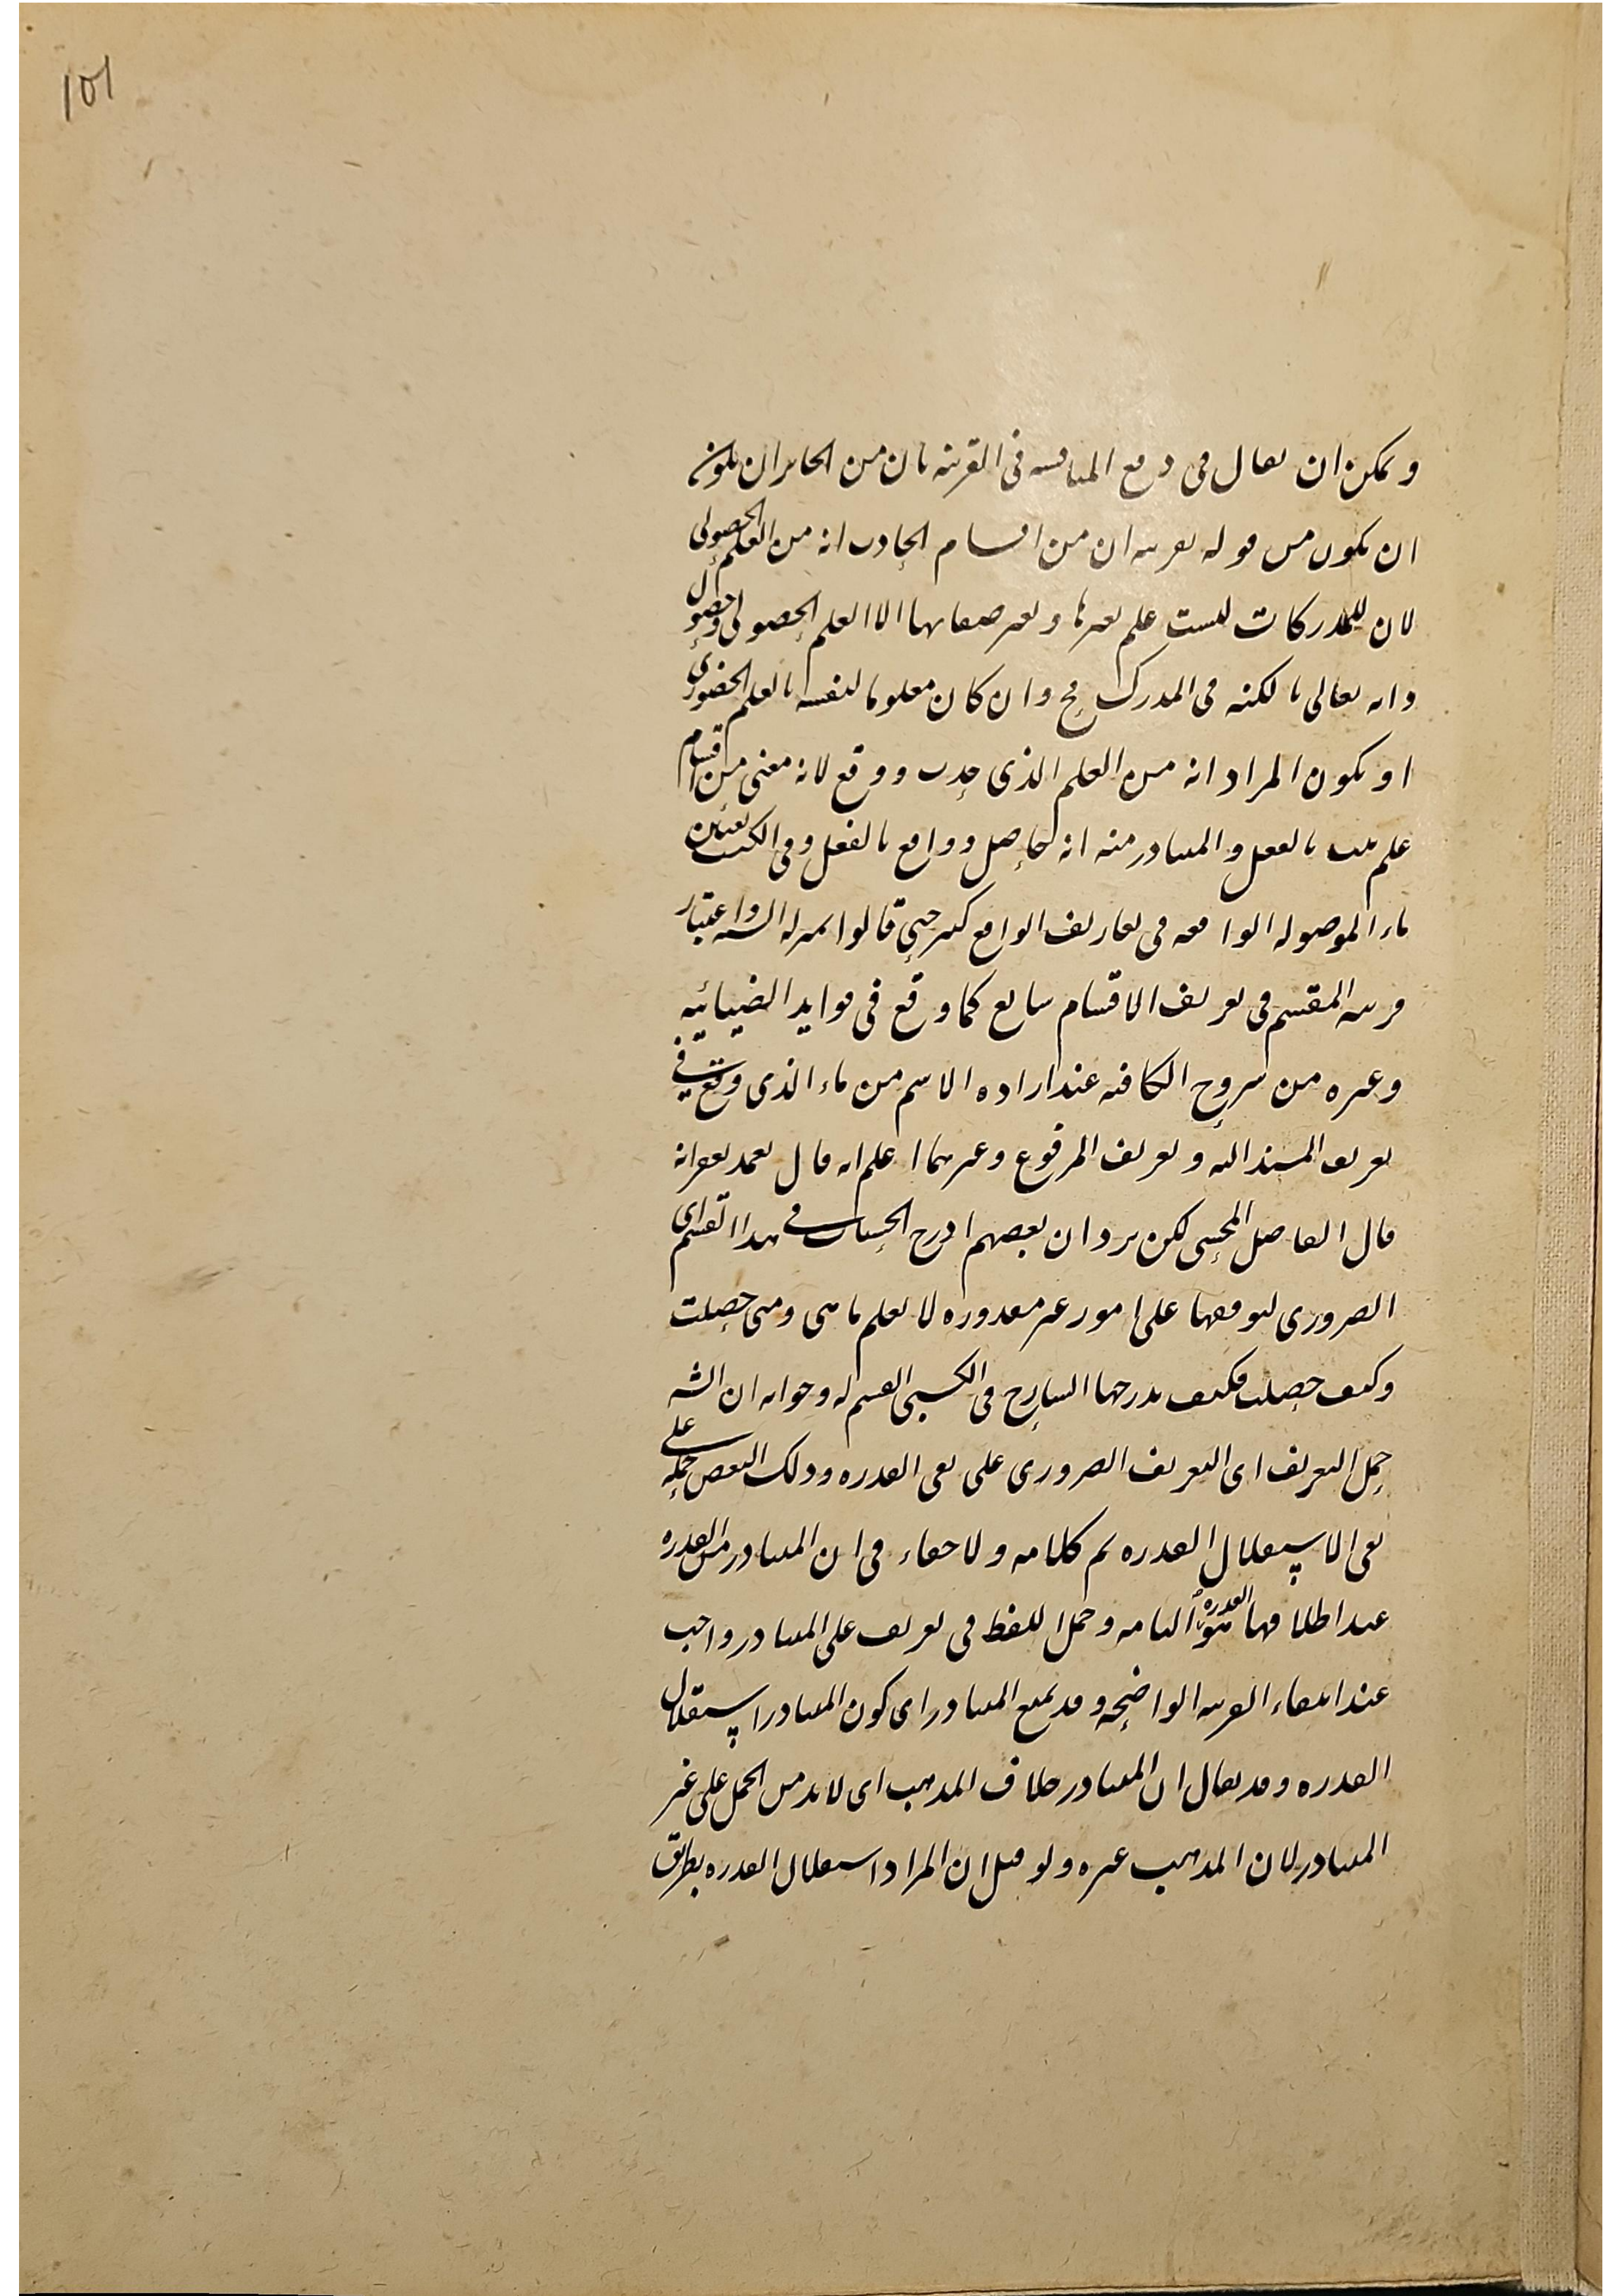 101
ويمكن ان يقال في دفع المناقشة في القرينه بان من الجايز ان يكون
ان يكون من قوله بقرينه ان من اقسام الحادث انه من العلم الحصولي
لان للمدركات ليست علم بغيرها وبغير صفاتها الا العلم الحصولي وحصول
ذاته تعالى بالكنه في المدرك مح وان كان معلوما لنفسه بالعلم الحضوري
او يكون المراد انه من العلم الذي حدث ووقع لانه معنى من اقسام
علم بالفعل والمتبادر منه انه حاصل وواقع بالفعل وفي الكتب
ماء الموصوله الواقعه في تعاريف الواقع كثير حتى قالوا واعتبار
قرينه المقسم في تعريف الاقسام شايع كما وقع في فوايد الضيائيه
وغيره من شروح الكافيه عند اراده الاسم من ماء الذي وقع في
تعريف المسند اليه وتعريف المرفوع وغيرهما اعلم انه قال
قال الفاضل المحشى لكن يرد ان بعضهم ادرج الحسيات في هذا التفسير اى
الضروري لتوقفها على امور غير مقدوره لا نعلم ما هي ومتى حصلت
وكيف حصلت فكيف يدرجها الشارح في الكسبى القسيم له وجوابه ان الشه
حمل التعريف اى التعريف الضروري على نفى القدره وذلك البعض حمله على
نفى الاستقلال القدره تم كلامه ولا خفاء في ان المتبادر من القدره
عند اطلاقها هو القدره التامه وحمل اللفظ في تعريف على المتبادر واجب
عند انتفاء القرينه الواضحه وقد يمنع المتبادر اى كون المتبادر استقلال
القدره وقد يقال ان المتبادر خلاف المذهب اى لا بد من الحمل على غير
المتبادر لان المذهب غيره ولو قيل ان المراد استقلال القدره بطريق